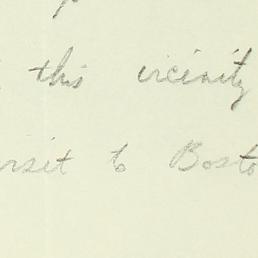 this vicinity
visit to Bosto